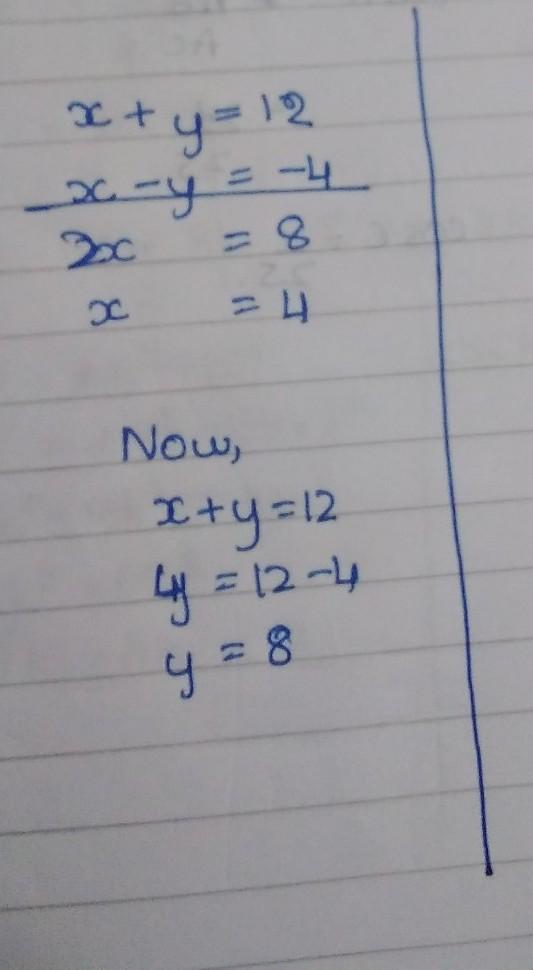 x + y = 12
x - y = -4
2x = 8
x = 4
Now,
x + y = 12
y = 12 - 4
y = 8